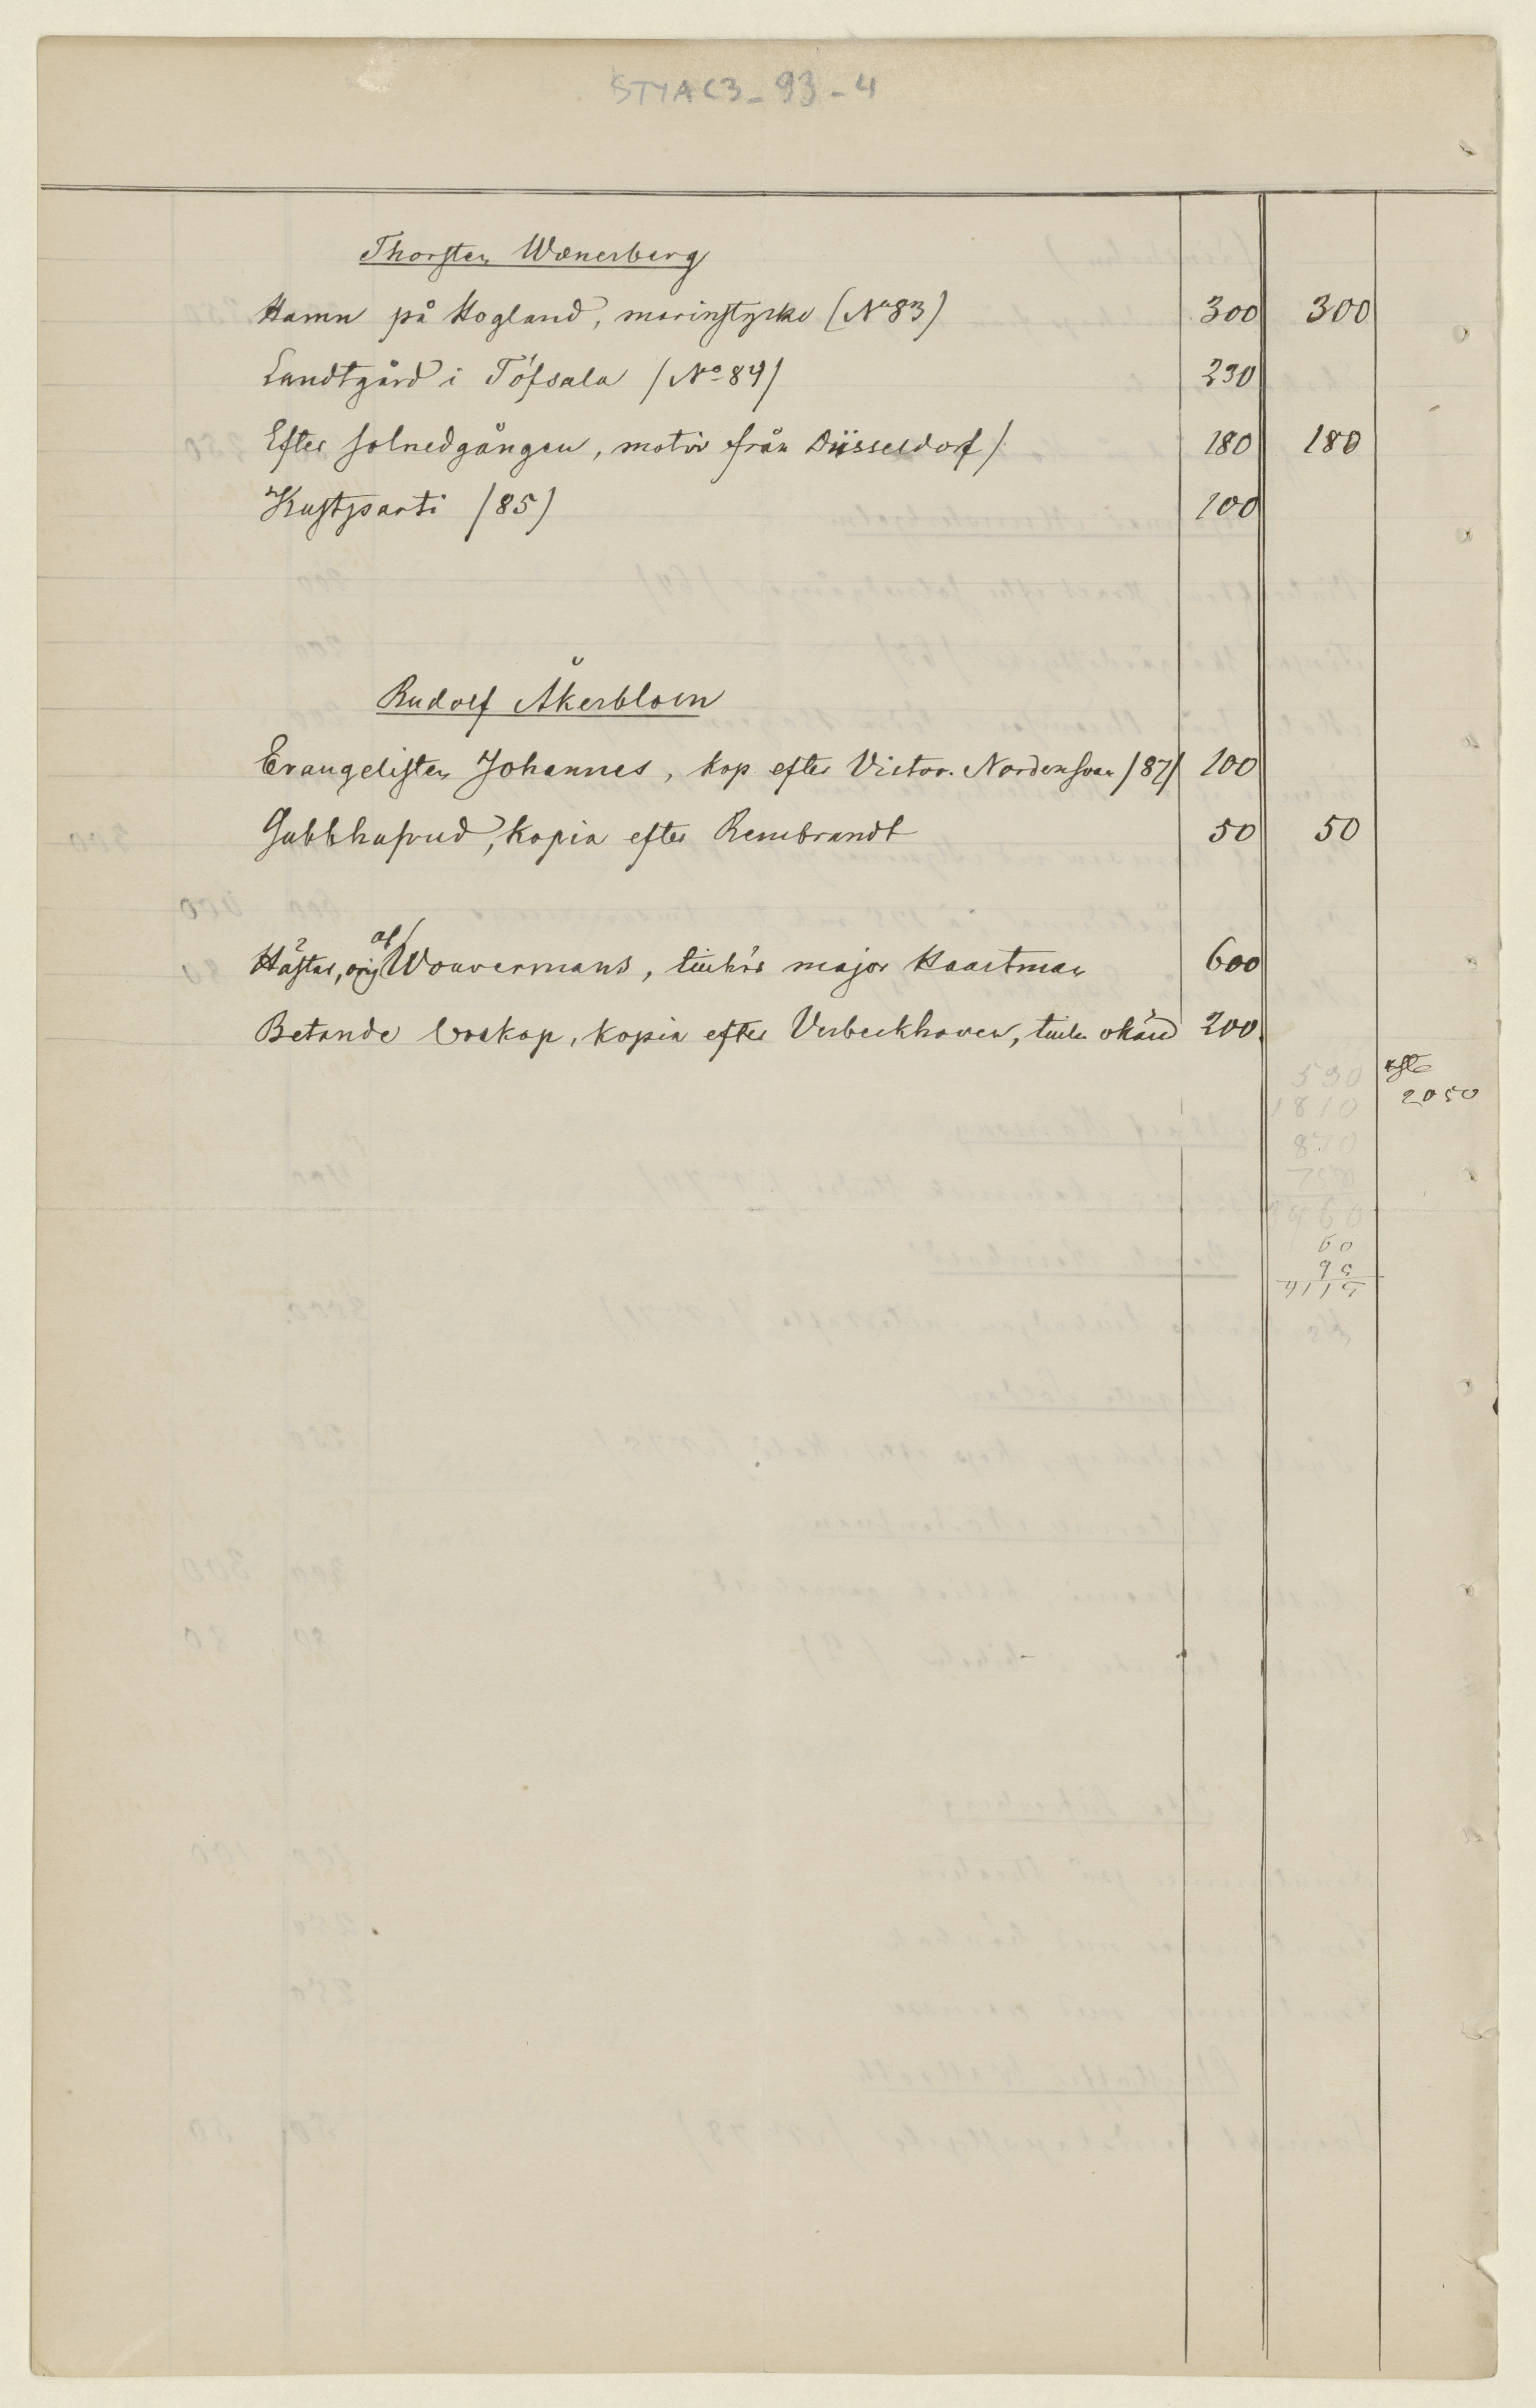 STYA C3 - 93 - 4
Thorsten Wænerberg
Hamn på Hogland, marinstycke (No 83) 300 300
Landtgård i Töfsala (No 84) 230
Efter solnedgången, motiv från Düsseldorf / 180 180
Kustparti (85) 100
Rudolf Åkerblom
Evangelisten Johannes, kop efter Victor. Nordensvan (87) 100
Gubbhufvud, kopia efter Rembrandt 50 50
Hästar, orig af Wouvermans, tillhör major Haartman 600
Betande boskap, kopia efter Verbeckhoven, okänd 200.
530
1810 2050
870
60
95
4115